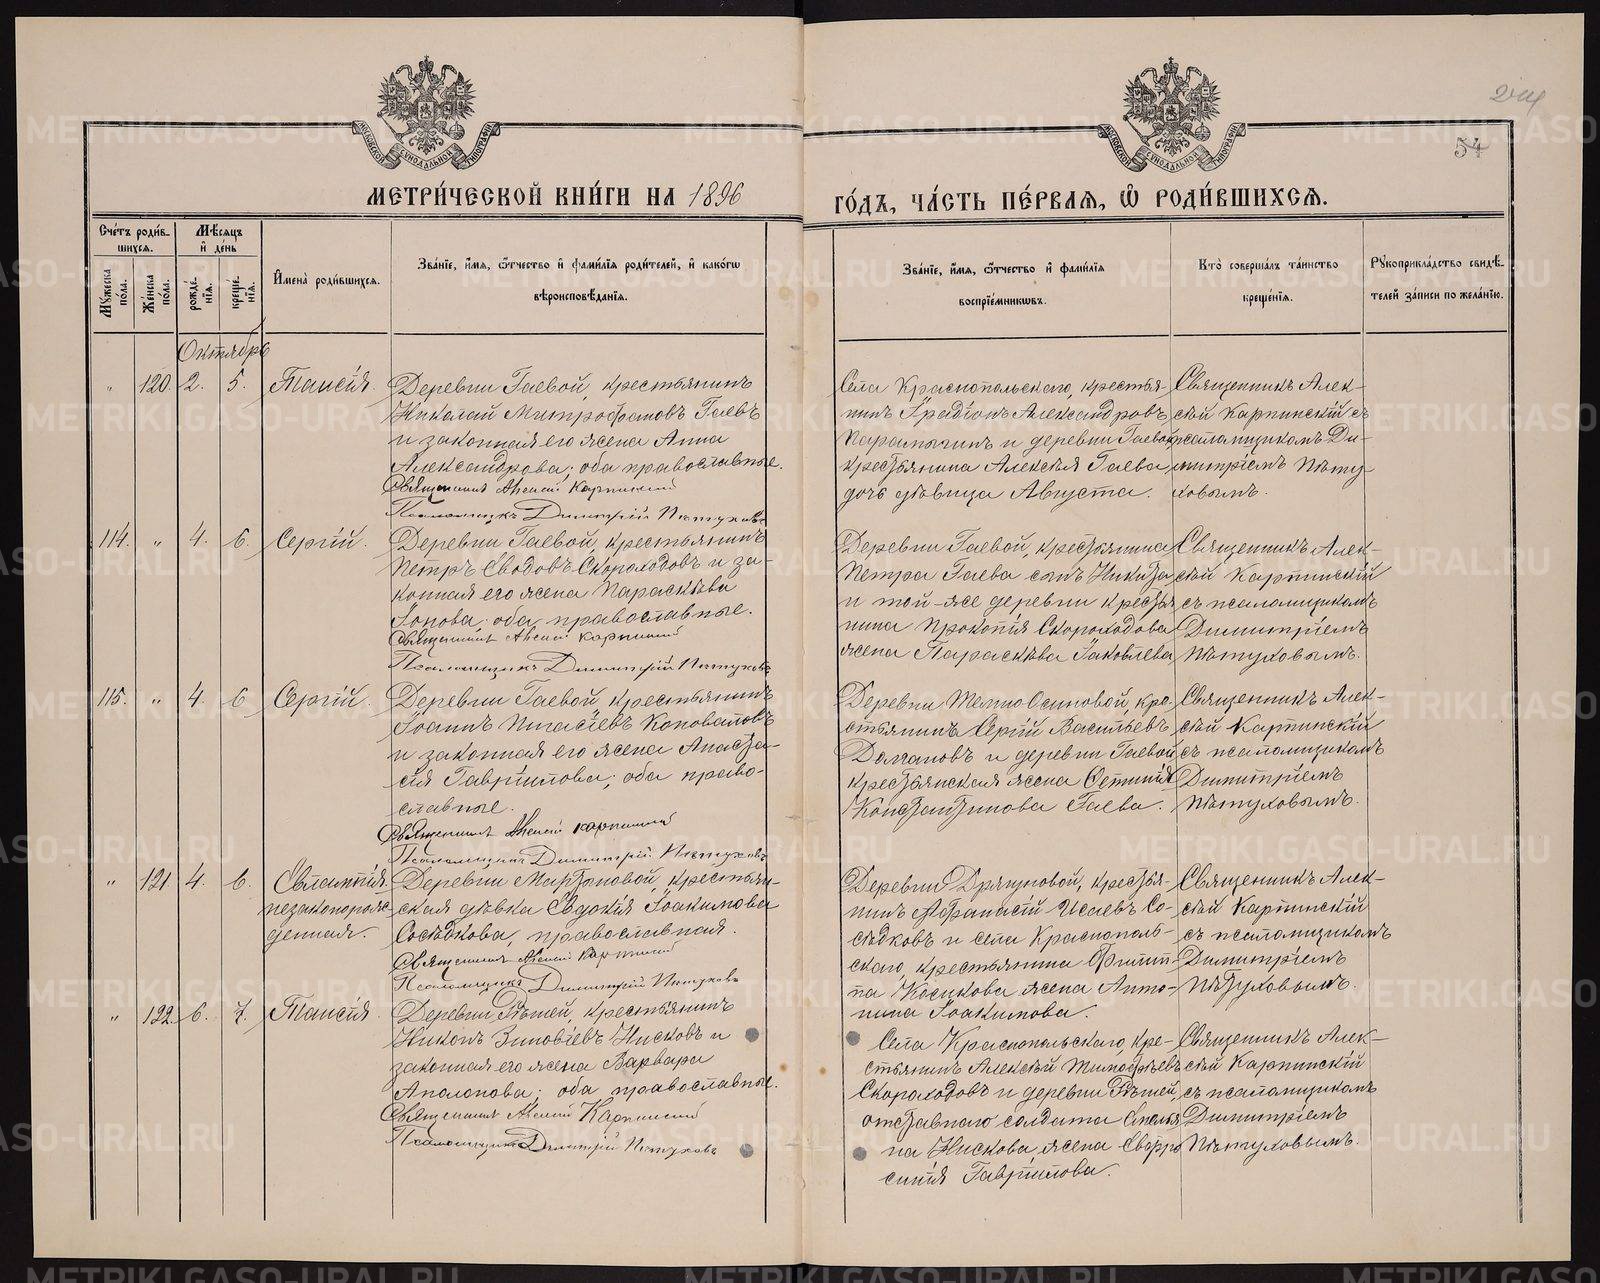 МОСКОВСКОЙ СѴНОДАЛЬНОЙ ТИПОГРАФІИ
МОСКОВСКОЙ СѴНОДАЛЬНОЙ ТИПОГРАФІИ
54
МЕТРИ́ЧЕСКОЙ КНИ́ГИ НА 1896
ГО́ДЪ, ЧА́СТЬ ПЕ́РВАЯ, Ѡ РОДИ́ВШИХСЯ.
Сче́тъ роди́вшихся.
Му́жеска по́ла.
Же́нска по́ла.
Мѣ́сяцъ и де́нь
рожде́нія.
креще́нія.
Имена̀ роди́вшихся.
Зва́ніе, и́мя, ѻ́тчество и фами́лія роди́телей, и како́гѡ
вѣроисповѣ́данія.
Зва́ніе, и́мя, ѻ́тчество и фами́лія
воспріе́мниковъ.
Кто̀ соверша́лъ та́инство
креще́нія.
Рукоприкла́дство свидѣ́-
телей за́писи по жела́нію.
Октябрь
" 120. 2. 5. Таисія.
Деревни Гаевой, крестьянинъ
Николай Митрофановъ Гаевъ
и законная его жена Анна
Александрова; оба православные.
Священникъ Алексій Карпинскій
Псаломщикъ Димитрій Пѣтуховъ
Села Краснопольскаго, крестья-
нинъ Іродіонъ Александровъ
Паранычинъ и деревни Гаевой
крестьянина Алексѣя Гаева
дочь дѣвица Августа.
Священникъ Алек-
сѣй Карпинскій съ
псаломщикомъ Ди-
митріемъ Пѣту-
ховымъ.
114. " 4. 6. Сергій.
Деревни Гаевой, крестьянинъ
Петръ Сводовъ Скороходовъ и за-
конная его жена Параскѣва
Іонова; оба православные.
Священникъ Алексій Карпинскій
Псаломщикъ Димитрій Пѣтуховъ
Деревни Гаевой, крестьянина
Петра Гаева сынъ Никита
и той-же деревни крестья
нина Прокопія Скороходова
жена Параскѣва Іаковлева
Священникъ Алек-
сѣй Карпинскій
съ псаломщикомъ
Димитріемъ
Пѣтуховымъ.
115. " 4. 6 Сергій.
Деревни Гаевой крестьянинъ
Іоаннъ Игнатіевъ Коноваловъ
и законная его жена Анаста-
сія Гавріилова; оба право-
славные.
Священникъ Алексій Карпинскій
Псаломщикъ Димитрій Пѣтуховъ
Деревни Темно-Осиновой, кре-
стьянинъ Сергій Васильевъ
Долгановъ и деревни Гаевой
крестьянская жена Устинія
Константинова Гаева.
Священникъ Алек-
сѣй Карпинскій
съ псаломщикомъ
Димитріемъ
Пѣтуховымъ.
" 121 4. 6. Евлампія
незаконорож-
денная.
Деревни Мартыновой, крестьян-
ская дѣвка Евдокія Іоакимова
Сосѣдкова, православная.
Священникъ Алексій Карпинскій
Псаломщикъ Димитрій Пѣтуховъ
Деревни Дрягуновой, крестья-
нинъ Афанасій Исаевъ Со-
сѣдковъ и села Краснополь-
скаго, крестьянина Филип-
па Косикова жена Анто-
нина Іоакимова.
Священникъ Алек-
сѣй Карпинскій
съ псаломщикомъ
Димитріемъ
Пѣтуховымъ.
" 122 6. 7. Таисія
Деревни Рѣшей, крестьянинъ
Никонъ Зиновіевъ Нисковъ и
законная его жена Варвара
Аполонова; оба православные.
Священникъ Алексій Карпинскій
Псаломщикъ Димитрій Пѣтуховъ
Села Краснопольскаго, кре-
стьянинъ Алексѣй Тимофѣевъ
Скороходовъ и деревни Рѣшей,
отставного солдата
на Нискова жена Евфро
синія Гавріилова.
Священникъ Алек-
сѣй Карпинскій
съ псаломщикомъ
Димитріемъ
Пѣтуховымъ.
METRIKI.GASO-URAL.RU